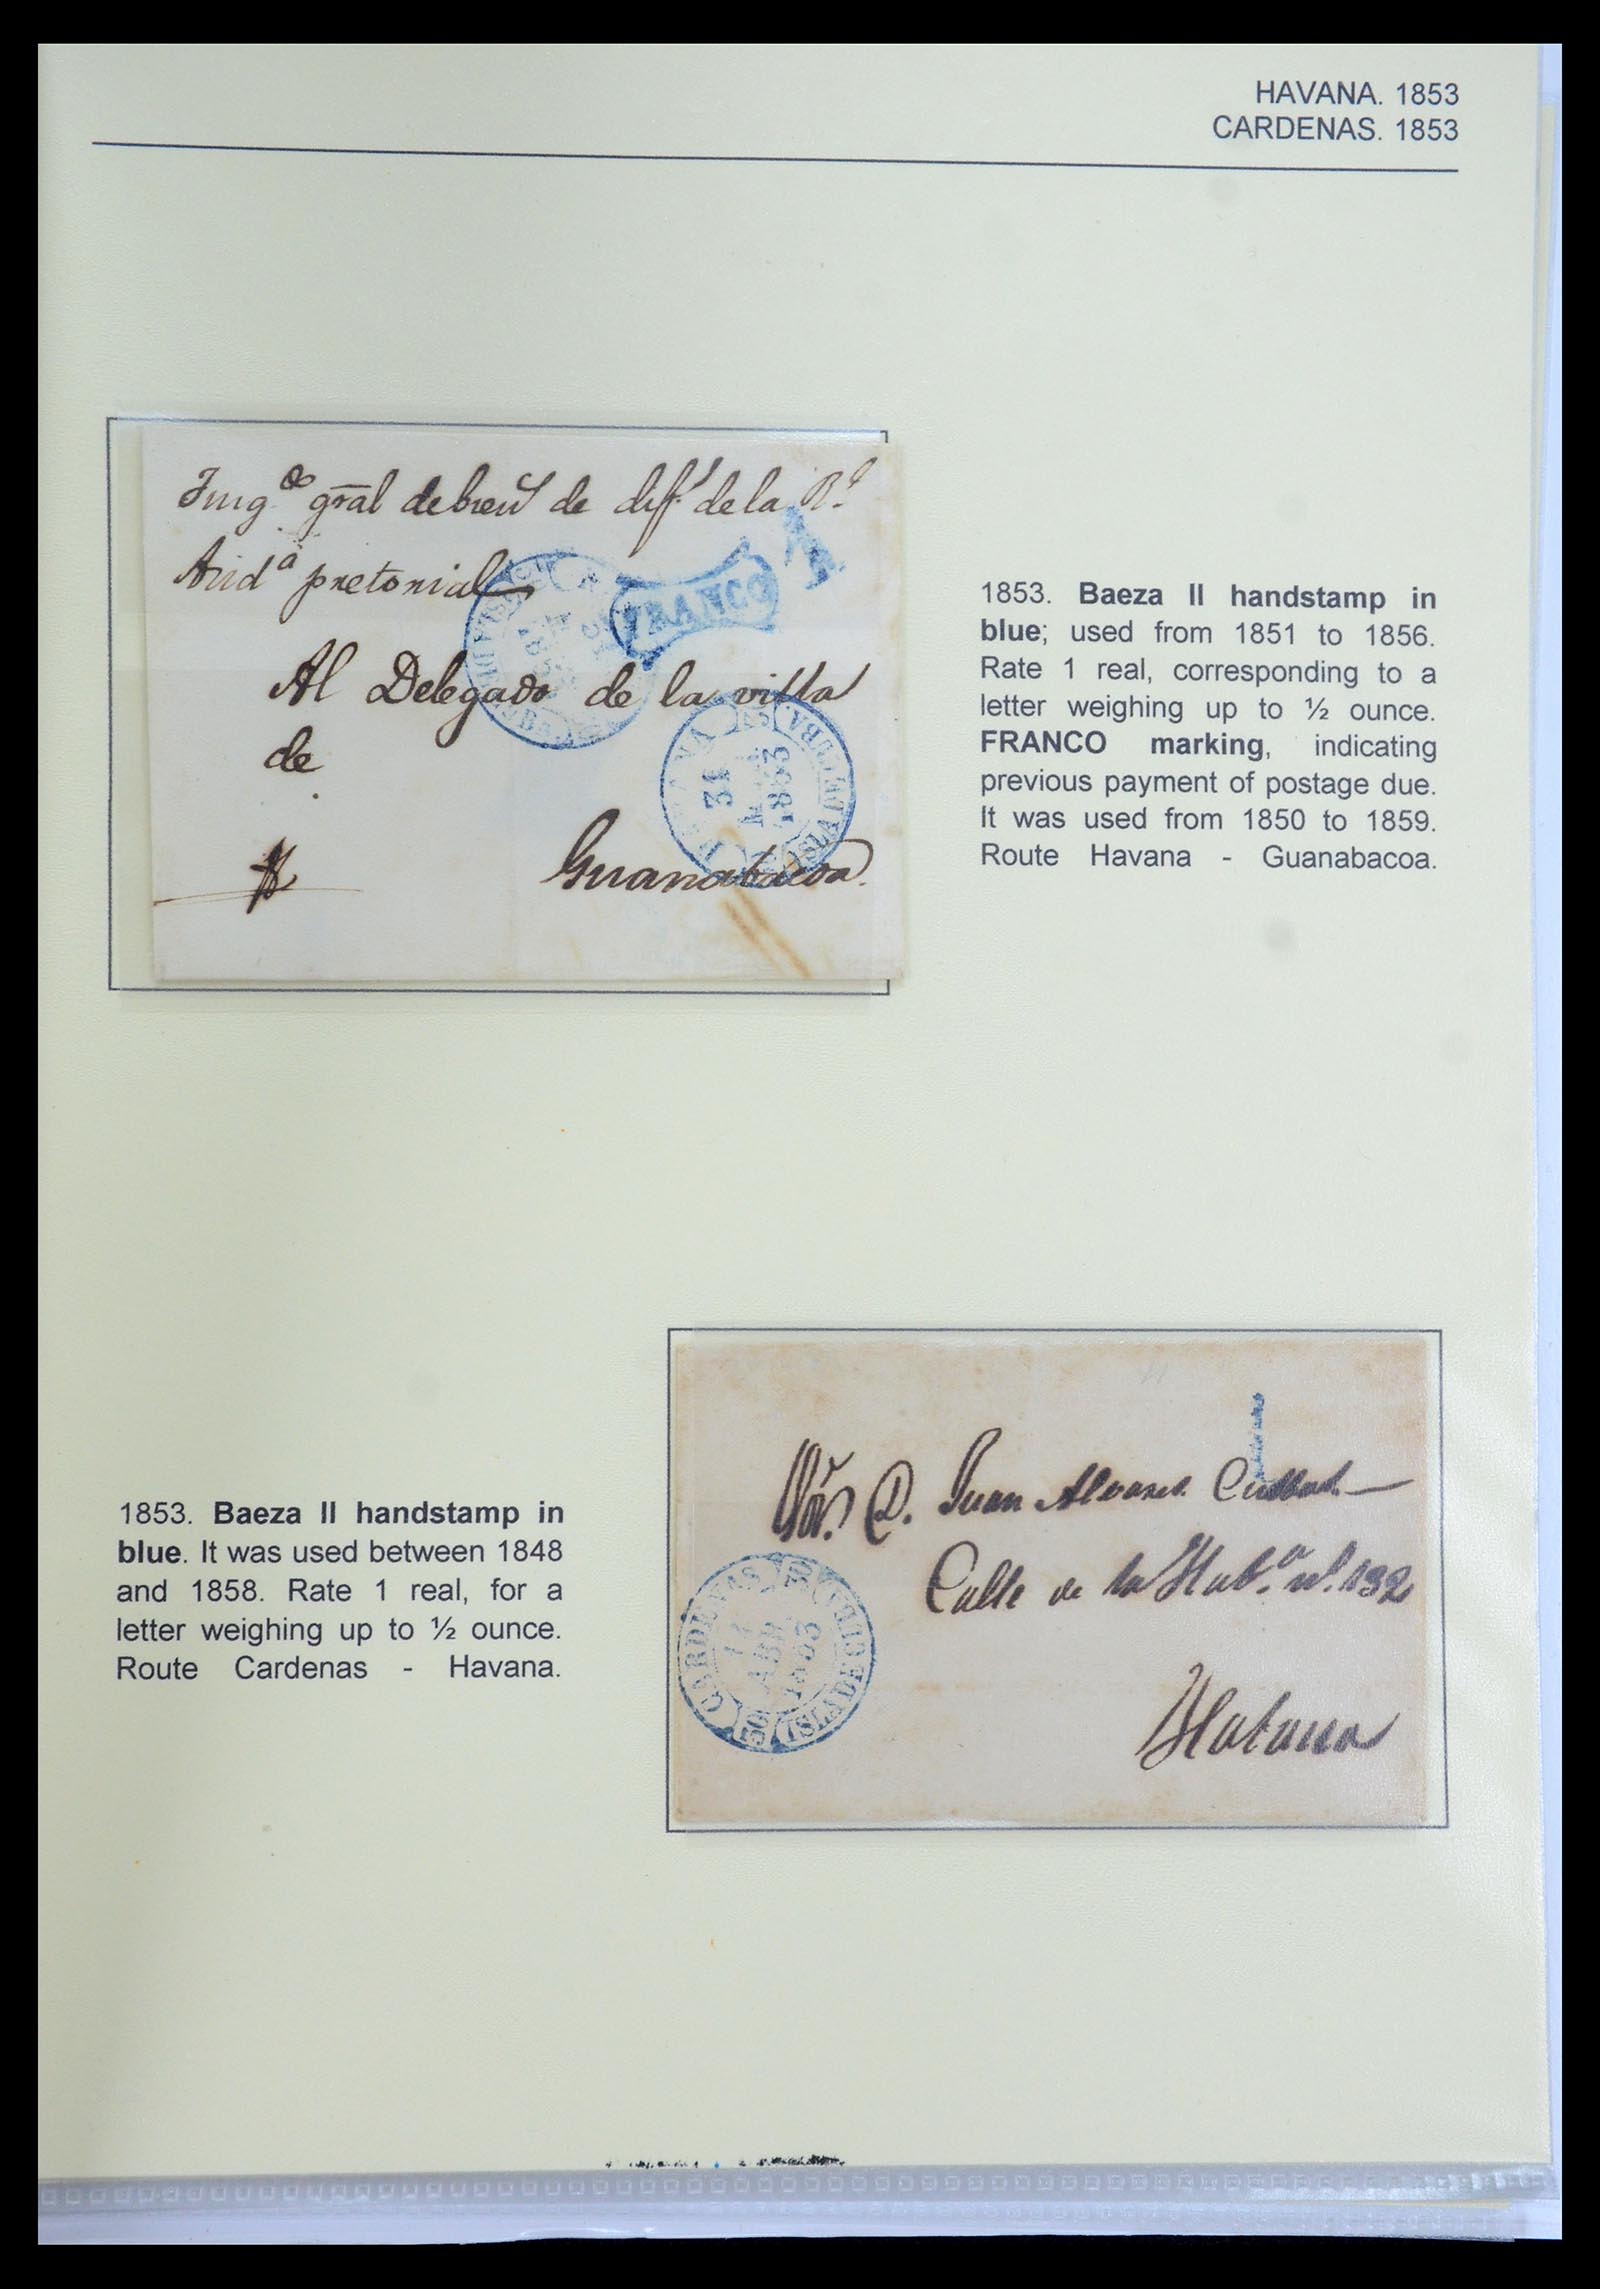 HAVANA. 1853
CARDENAS. 1853
gral de de la Rl
Audª pretorial
FRANCO
Al Delegado de la villa
de
Guanabacoa.
HABANA
31
1853
ISLA DE CUBA.
1853. Baeza II handstamp in
blue; used from 1851 to 1856.
Rate 1 real, corresponding to a
letter weighing up to ½ ounce.
FRANCO marking, indicating
previous payment of postage due.
It was used from 1850 to 1859.
Route Havana - Guanabacoa.
1853. Baeza II handstamp in
blue. It was used between 1848
and 1858. Rate 1 real, for a
letter weighing up to ½ ounce.
Route Cardenas - Havana.
1
Sor. D. Juan Alvarez
Calle de la Habª nº. 132
Habana
CARDENAS
ABR
1853
ISLA DE CUBA